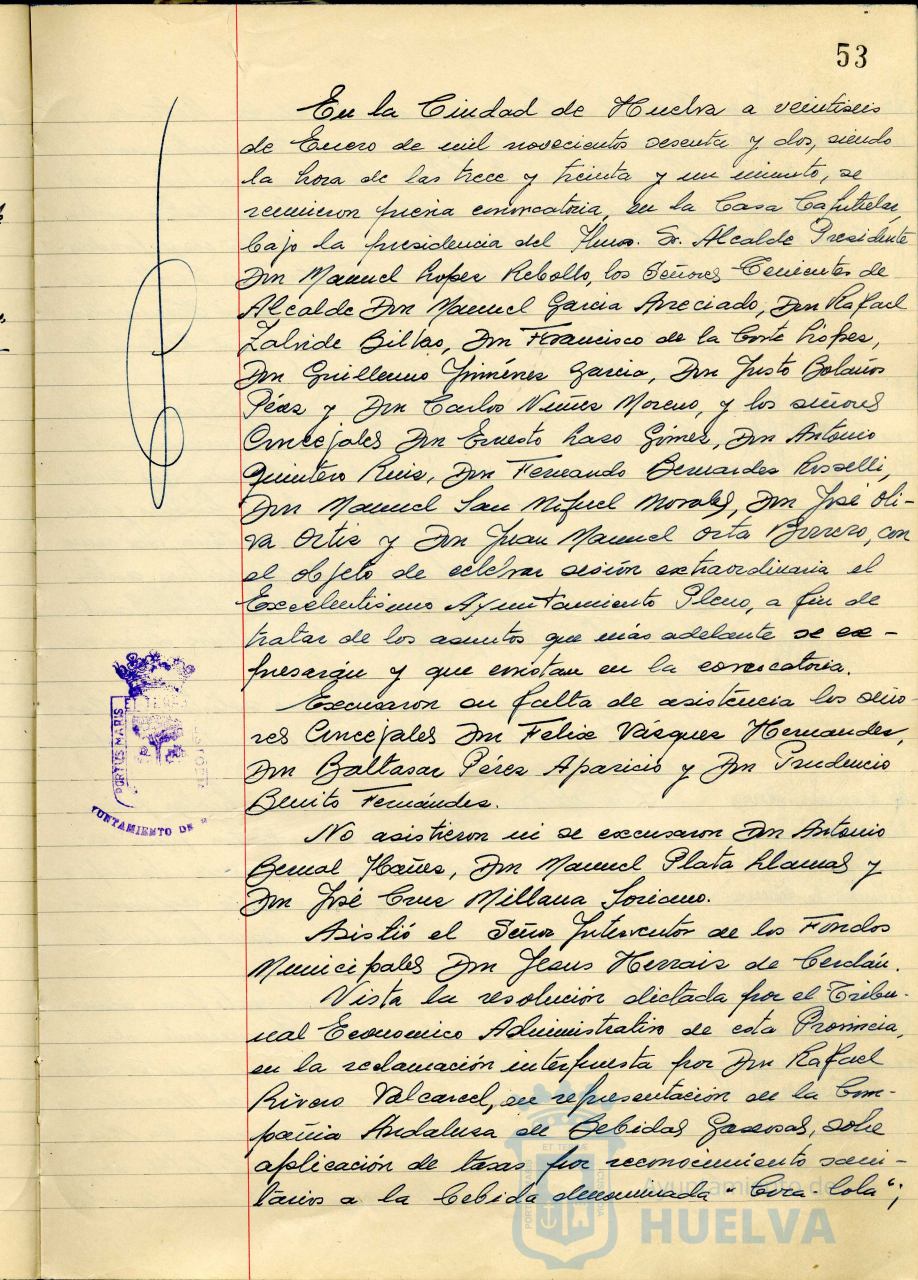 53
En la Ciudad de Huelva a veintiseis
de Enero de mil novecientos sesenta y dos, siendo
la hora de las trece y treinta y un minuto, se
reunieron previa convocatoria, en la Casa Capitular,
bajo la presidencia del Ilmo. Sr. Alcalde Presidente
Don Manuel Lopez Rebollo, los Señores Tenientes de
Alcalde Don Manuel Garcia Aveciado, Don Rafael
Zalvide Bilbao, Don Francisco de la Corte López,
Don Guillermo Jiménez Garcia, Don Justo Bolaños
Pérez y Don Carlos Núñez Moreno, y los señores
Concejales Don Ernesto Laso Gómez, Don Antonio
Quintero Ruiz, Don Fernando Bermudez Rosselli,
Don Manuel San Miguel Morales, Don José Oli-
va Ortiz y Don Juan Manuel Orta Borrero, con
el objeto de celebrar sesión extraordinaria el
Excelentisimo Ayuntamiento Pleno, a fin de
tratar de los asuntos que más adelante se ex-
presarán y que constan en la convocatoria.
Excusaron su falta de asistencia los seño
res Concejales Don Felix Vásquez Hernandez,
Don Baltasar Pérez Aparicio y Don Prudencio
Benito Fernández.
No asistieron ni se excusaron Don Antonio
Bernal Ibáñez, Don Manuel Plata Llamas y
Don José Cruz Millana Soriano.
Asistió el Señor Interventor de los Fondos
Municipales Don Jesus Herraiz de Cerdán.
Vista la resolución dictada por el Tribu-
nal Economico Administrativo de esta Provincia,
en la reclamación interpuesta por Don Rafael
Rivero Valcarcel, en representación de la Com-
pañia Andaluza de Bebidas Gaseosas, sobre
aplicación de tasas por reconocimiento sani-
tarios a la bebida denominada "Coca-Cola";
PORTUS MARIS
ET TERRAE
CUSTODIA
AYUNTAMIENTO DE
Ayuntamiento de
HUELVA